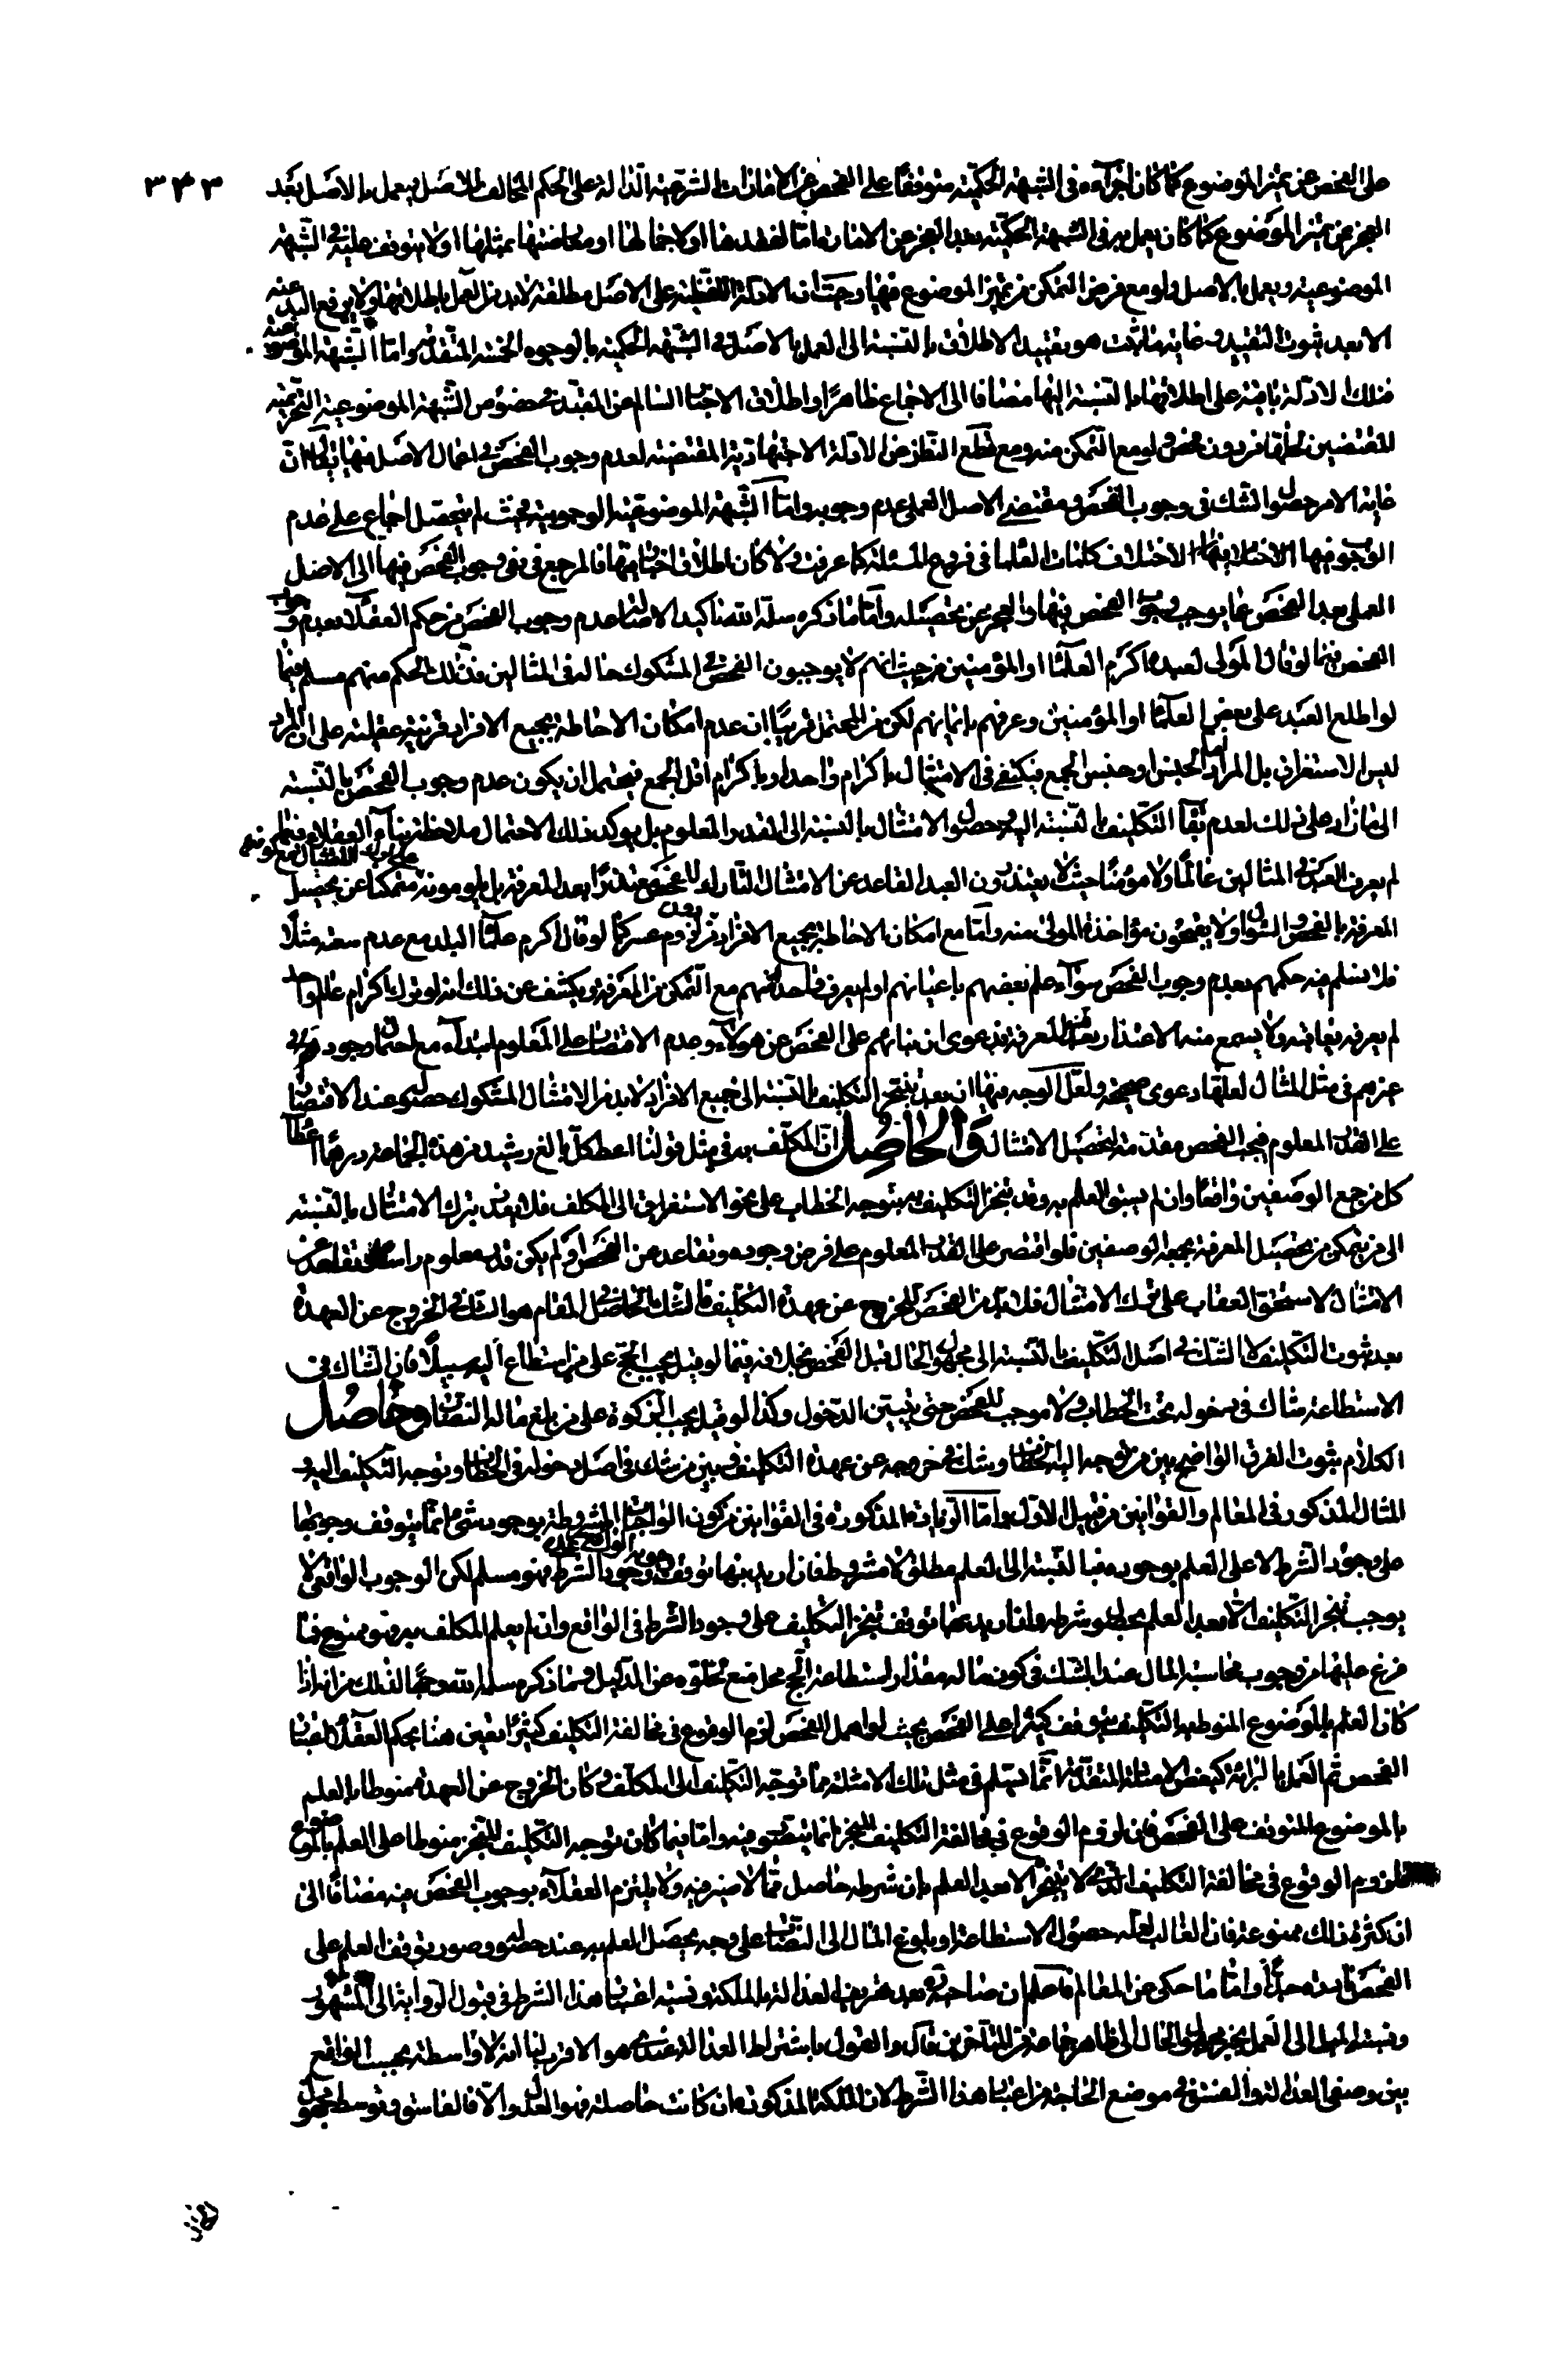 ٣٤٣
على الفحص عن تميز الموضوع كما كان اجراءه فى الشبهة الحكمية متوقفا على الفحص عن الامارات الشرعية الدالة على الحكم المخالف للاصل يعمل بالاصل بعد
العجز عن تميز الموضوع كما كان يعمل به فى الشبهة الحكمية بعد العجز عن الامارة اما لفقدها او لاجمالها او معارضتها بمثلها او لا يتوقف عليه فى الشبهة
الموضوعية ويعمل بالاصل ولو مع فرض التمكن من تميز الموضوع فيها وحيث ان الادلة اللفظية على الاصل مطلقة لابد من العمل باطلاقها ولا يرفع اليد عنه
الا بعد ثبوت التقييد وغاية ما ثبت هو تقييد الاطلاق بالنسبة الى العمل بالاصل فى الشبهة الحكمية بالوجوه الخمسة المتقدمة واما الشبهة الموضوعية
فتلك الادلة باقية على اطلاقها بالنسبة اليها مضافا الى الاجماع ظاهرا واطلاق الاخبار السالم عن المقيد فى خصوص الشبهة الموضوعية التحريمية
المقتضيين لها من دون فحص ولو مع التمكن منه ومع قطع النظر عن الادلة الاجتهادية المقتضية لعدم وجوب الفحص فى اعمال الاصل فيها نقول ان
غاية الامر حصول الشك فى وجوب الفحص ومقتضى الاصل العملى عدم وجوبه واما الشبهة الموضوعية الوجوبية فحيث لم يتحصل اجماع على عدم
الوجوب فيها لاختلاف كلمات العلماء فى فروع المسئلة كما عرفت ولا كان اطلاق اخبار فيها فالمرجع فى نفى وجوب الفحص فيها الى الاصل
العملى بعد الفحص عما يوجب وجوب الفحص فيها والعجز عن تحصيله واما ما ذكره سلمه الله تاكيدا لاصالة عدم وجوب الفحص من حكم العقلاء بعدم وجوب
الفحص فيما لو قال المولى لعبده اكرم العلماء او المؤمنين من حيث انهم لا يوجبون الفحص فى المشكوك حاله فى المثالين فذلك الحكم منهم مسلم فيما
لو اطلع العبد على بعض العلماء او المؤمنين وعرفهم باعيانهم لكن من المحتمل قريبا ان عدم امكان الاحاطة بجميع الافراد قرينة عقلية على ان المراد
ليس الاستغراق بل المراد اما الجنس او جنس الجمع فيكتفى فى الامتثال باكرام واحد او باكرام اقل الجمع فيحتمل ان يكون عدم وجوب الفحص بالنسبة
الى ما زاد على ذلك لعدم بقاء التكليف بالنسبة اليه وحصول الامتثال بالنسبة الى القدر المعلوم بل يؤكد ذلك الاحتمال ملاحظة بناء العقلاء فيما
لم يعرف العبد فى المثالين عالما ولا مؤمنا حيث لا يعتدون العبد القاعد عن الامتثال التارك للفحص معذورا بعدم المعرفة بل يلومونه على ترك الامتثال مع كونه متمكنا عن تحصيل
المعرفة بالفحص والسؤال ولا يقبحون مؤاخذة المولى منه واما مع امكان الاحاطة بجميع الافراد من دون لزوم عسر كما لو قال اكرم علماء البلد مع عدم سعته مثلا
فلا نسلم منه حكمهم بعدم وجوب الفحص سواء علم بعضهم باعيانهم او لم يعرف واحدا منهم مع التمكن من المعرفة ويكشف عن ذلك انه لو ترك اكرام عالم واحد
لم يعرفه يعاتبه ولا يسمع منه الاعتذار بعدم المعرفة فدعوى ان بنائهم على الفحص عن هؤلاء وعدم الاقتصار على المعلوم ابتداء مع احتمال وجود
غيرهم فى مثل المثال لعلها دعوى صحيحة ولعل الوجه فيها ان بعد تنجز التكليف بالنسبة الى جميع الافراد لابد من الامتثال المشكوك حصوله عند الاقتصار
على القدر المعلوم فيجب الفحص مقدمة لتحصيل الامتثال والحاصل ان المكلف به فى مثل قولنا اعط كل بالغ رشيد من هذه الجماعة درهما اعطاء
كل من جمع الوصفين واقعا وان لم يسبق العلم به وقد تنجز التكليف به بتوجه الخطاب على نحو الاستغراق الى المكلف فلا يعذر بترك الامتثال بالنسبة
الى من يتمكن من تحصيل المعرفة بجمعه الوصفين فلو اقتصر على القدر المعلوم على فرض وجوده وتقاعد عن الفحص او لم يكن قدر معلوم راسا وتقاعد عن
الامتثال لاستحق العقاب على ترك الامتثال فلابد من الفحص للخروج عن عهدة التكليف فالشك الحاصل فى المقام هو الشك فى الخروج عن العهدة
بعد ثبوت التكليف لا الشك فى اصل التكليف بالنسبة الى مجهول الحال قبل الفحص بخلافه فيما لو قيل يجب الحج على من استطاع اليه سبيلا فان الشاك فى
الاستطاعة شاك فى دخوله تحت الخطاب ولا موجب للفحص حتى يتبين الدخول وكذا لو قيل يجب الزكوة على من بلغ ماله النصاب وحاصل
الكلام ثبوت الفرق الواضح بين من توجه اليه الخطاب وشك فى خروجه عن عهدة التكليف وبين من شك فى اصل دخوله فى الخطاب وتوجه التكليف اليه و
المثال المذكور فى المعالم والقوانين من قبيل الاول واما الزيادة المذكورة فى القوانين من كون الواجبات المشروطة بوجود شئ انما يتوقف وجوبها
على وجود الشرط لا على العلم بوجوده فبالنسبة الى العلم مطلق لا مشروط فان اريد بها توقف الوجوب الواقعى على وجود الشرط فهو مسلم لكن الوجوب الواقعى لا
يوجب تنجز التكليف الا بعد العلم بحصول شرطه وان اريد بها توقف تنجز التكليف على وجود الشرط فى الواقع وان لم يعلم المكلف به فهو ممنوع فما
فرع عليها من وجوب محاسبة المال عند الشك فى كون ماله مقدار استطاعة الحج محل منع لخلوه عن الدليل وما ذكره سلمه الله وجها لذلك من انه اذا
كان العلم بالموضوع المنوط به التكليف يتوقف كثيرا على الفحص بحيث لو اهمل الفحص لزم الوقوع فى مخالفة التكليف كثيرا تعين هنا بحكم العقلاء اعتبار
الفحص ثم العمل بالبراءة كبعض الامثلة المتقدمة انما يسلم فى مثل تلك الامثلة مما توجه التكليف الى المكلف وكان الخروج عن العهدة منوطا بالعلم
بالموضوع المتوقف على الفحص فان لزوم الوقوع فى مخالفة التكليف المنجز انما يتصور فيه واما فيما كان توجه التكليف المنجز منوطا على العلم بالموضوع
فلزوم الوقوع فى مخالفة التكليف الذى لا يتنجز الا بعد العلم بان شرطه حاصل مما لا ضير فيه ولا يلتزم العقلاء بوجوب الفحص فيه مضافا الى
ان كثرة ذلك ممنوعة فان الغالب لعله حصول الاستطاعة او بلوغ المال الى النصاب على وجه يحصل العلم به عند حصوله وصور توقف العلم على
الفحص نادرة جدا واما ما حكى عن المعالم فاعلم ان صاحبه بعد تعريف العدالة بالملكة ونسبة اعتبار هذا الشرط فى قبول الرواية الى المشهور
ونسبة الميل الى العمل بخبر مجهول الحال الى ظاهر جماعة من المتأخرين قال والقول باشتراط العدالة عندى هو الاقرب لنا انه لا واسطة بحسب الواقع
بين وصفى العدالة والفسق فى موضع الحاجة من اعتبار هذا الشرط لان الملكة المذكورة ان كانت حاصلة فهو العدل والا فالفاسق وتوسط مجهول